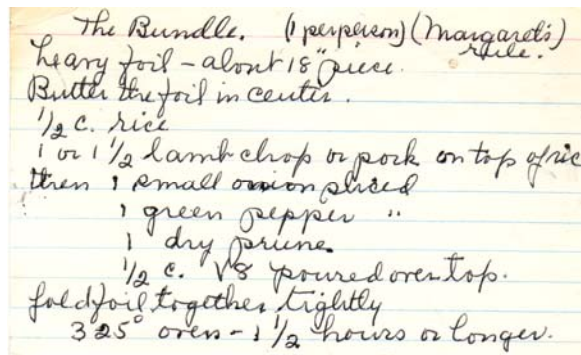 The Bundle. (1 per person) (Margaret's)
rule.
heavy foil - about 18" piece.
Butter the foil in center.
1/2 c. rice
1 or 1 1/2 lamb chop or pork on top of ric
then 1 small onion sliced
1 green pepper "
1 dry prune.
1/2 c. V8 poured over top.
fold foil together tightly
325° oven - 1 1/2 hours or longer.